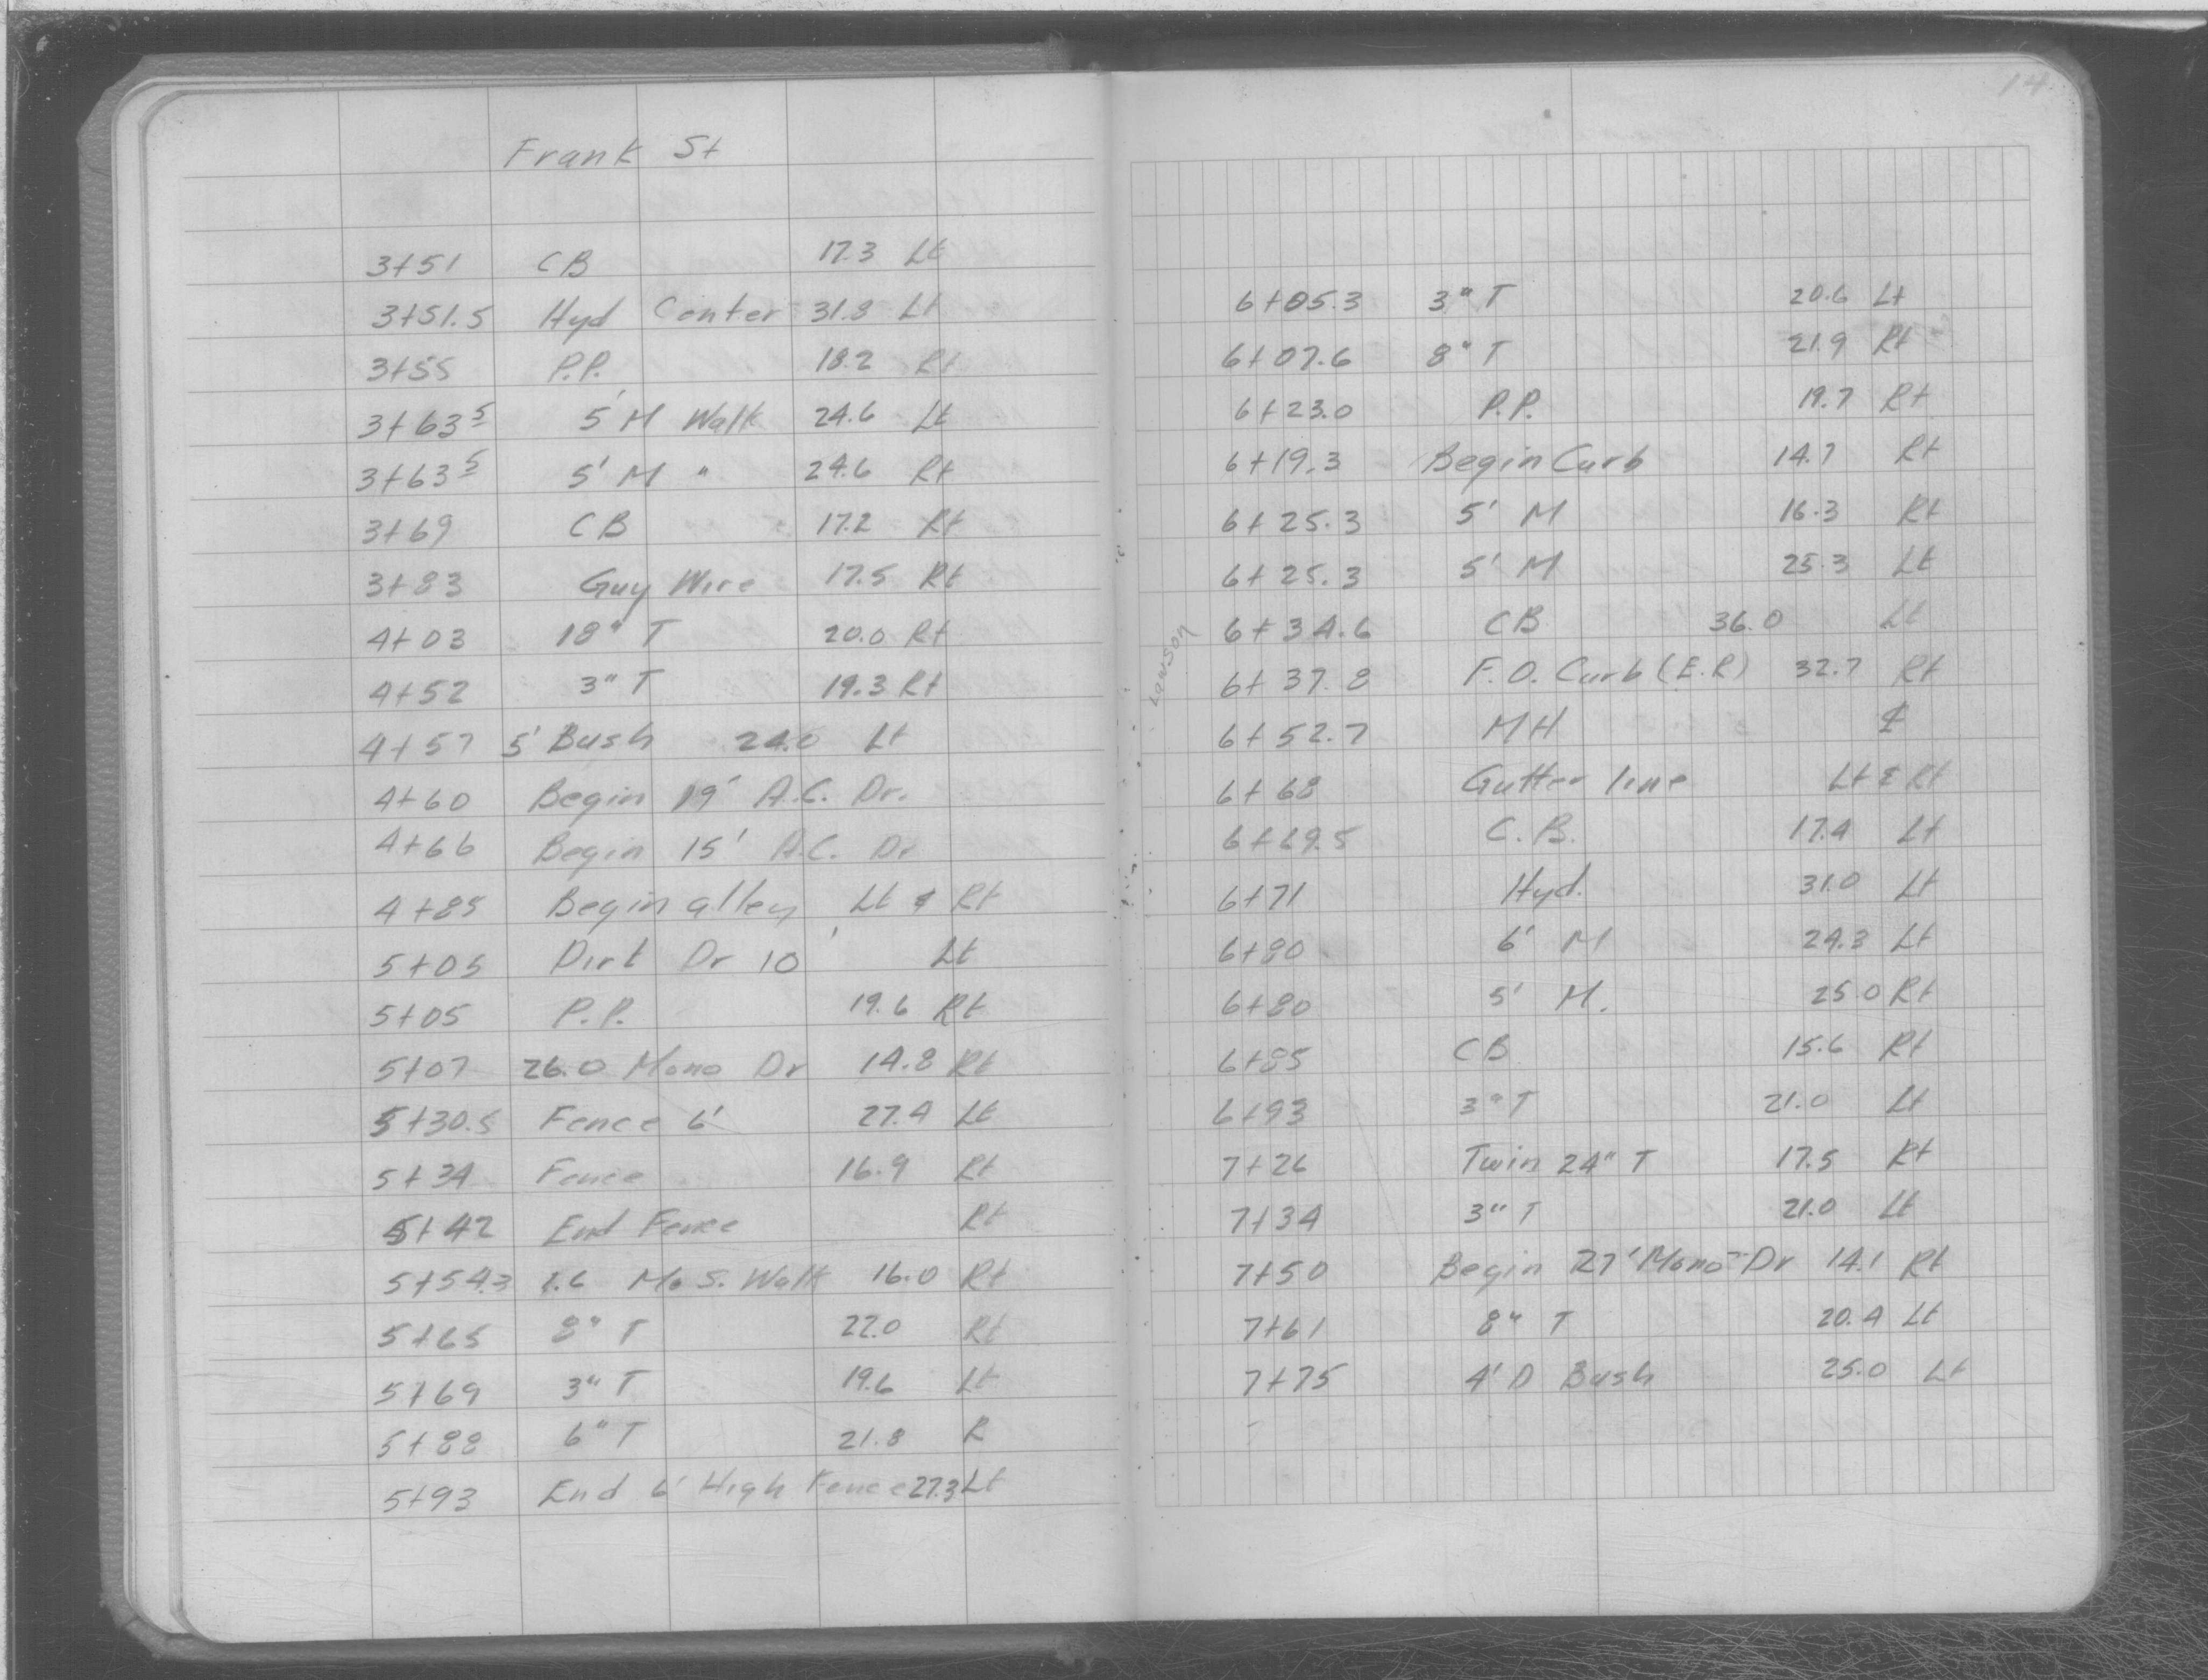 Frank St
3+51 CB 17.3 Lt
3+51.5 Hyd Center 31.8 Lt
3+55 P.P. 18.2 Rt
3+63 5 5' M Walk 24.6 Lt
3+63 5 5' M " 24.6 Rt
3+69 CB 17.2 Rt
3+83 Guy Wire 17.5 Rt
4+03 18" T 20.0 Rt
4+52 3" T 19.3 Rt
4+57 5' Bush 24.0 Lt
4+60 Begin 19' A.C. Dr.
4+66 Begin 15' A.C. Dr
4+85 Begin alley Lt & Rt
5+05 Dirt Dr 10' Lt
5+05 P.P. 19.6 Rt
5+07 26.0 Mono Dr 14.8 Rt
5+30.5 Fence 6' 27.4 Lt
5+34 Fence 16.9 Rt
5+42 End Fence Rt
5+54.3 1.6 Mo S. Walk 16.0 Rt
5+65 8" T 22.0 Rt
5+69 3" T 19.6 Lt
5+88 6" T 21.8 R
5+93 End 6' High Fence 27.3 Lt
14
6+05.3 3" T 20.6 Lt
6+07.6 8" T 21.9 Rt
6+23.0 P.P. 19.7 Rt
6+19.3 Begin Curb 14.7 Rt
6+25.3 5' M 16.3 Rt
6+25.3 5' M 25.3 Lt
Lawson
6+34.6 CB 36.0 Lt
6+37.8 F.O. Curb (E.R) 32.7 Rt
6+52.7 MH ℄
6+68 Gutter line Lt & Rt
6+69.5 C.B. 17.4 Lt
6+71 Hyd. 31.0 Lt
6+80 6' M 24.3 Lt
6+80 5' M. 25.0 Rt
6+85 CB 15.6 Rt
6+93 3" T 21.0 Lt
7+26 Twin 24" T 17.5 Rt
7+34 3" T 21.0 Lt
7+50 Begin 27' Mono Dr 14.1 Rt
7+61 8" T 20.4 Lt
7+75 4' D Bush 25.0 Lt